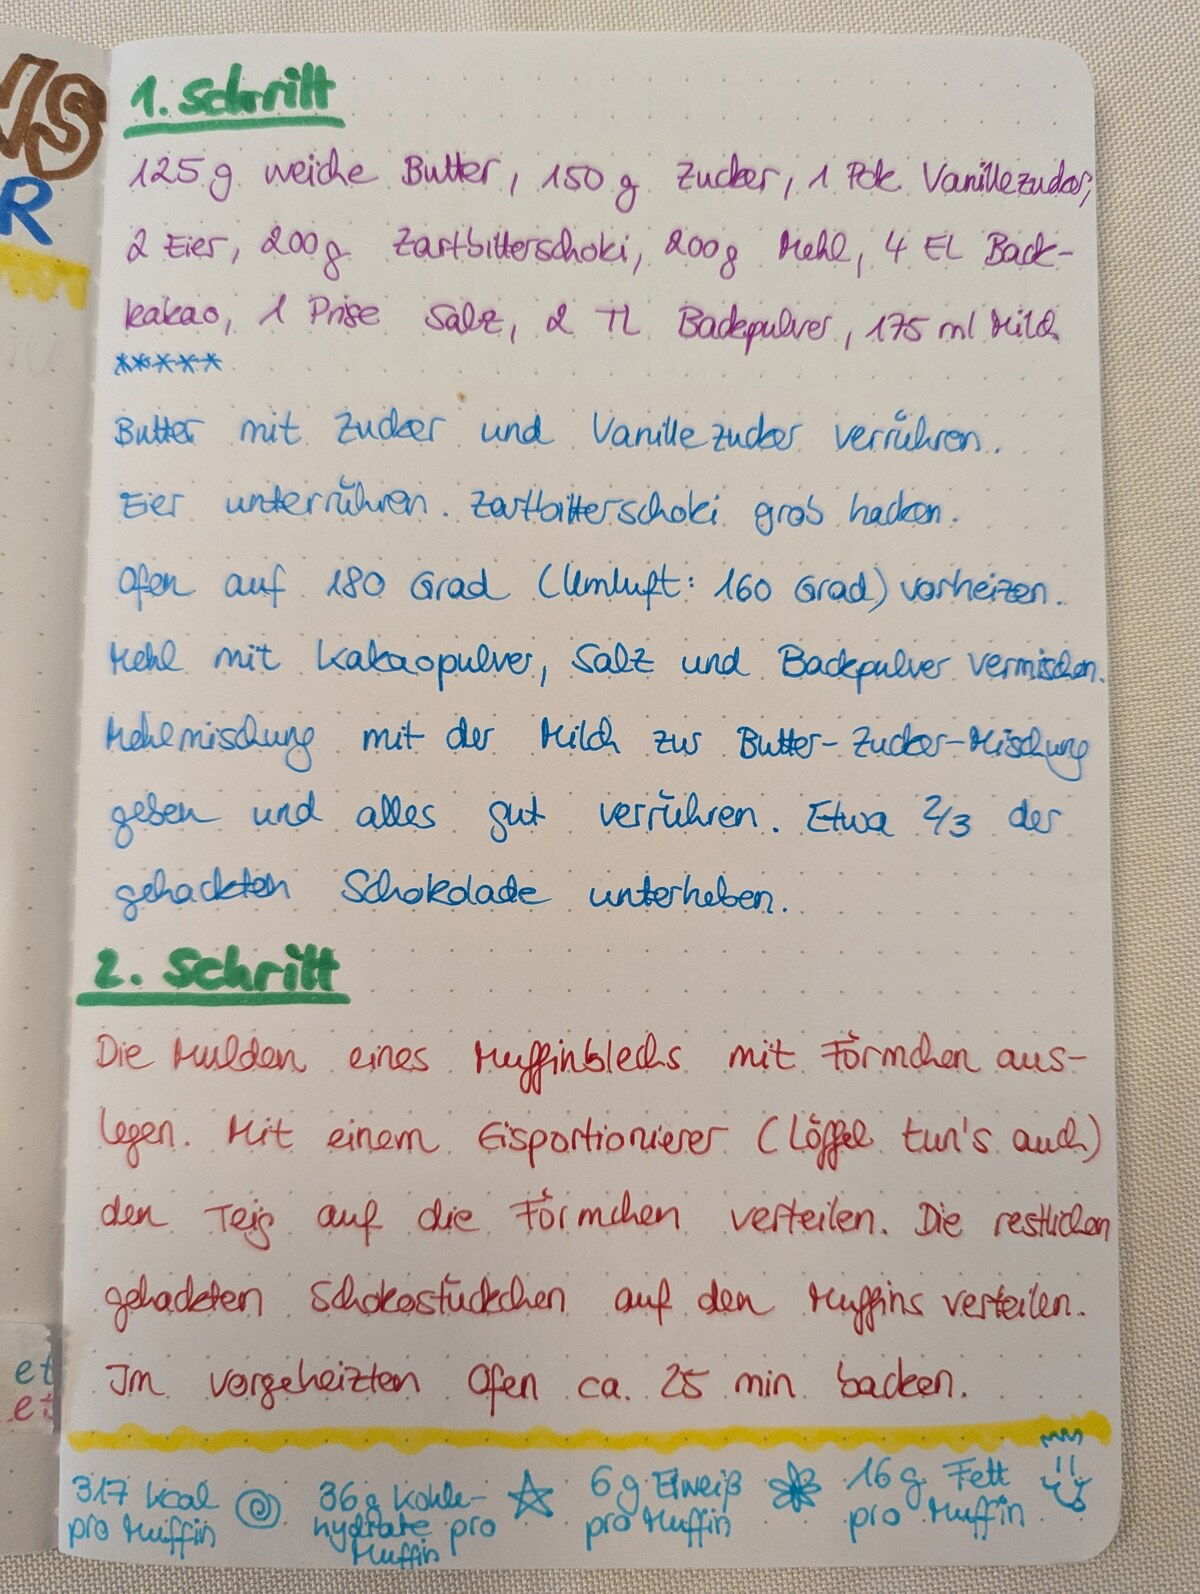 NS
R
et
et
1. Schritt
125 g weiche Butter, 150 g Zucker, 1 Pck. Vanillezucker,
2 Eier, 200g Zartbitterschoki, 200g Mehl, 4 EL Back-
kakao, 1 Prise Salz, 2 TL Backpulver, 175 ml Milch
*****
Butter mit Zucker und Vanillezucker verrühren.
Eier unterrühren. Zartbitterschoki grob hacken.
Ofen auf 180 Grad (Umluft: 160 Grad) vorheizen.
Mehl mit Kakaopulver, Salz und Backpulver vermischen.
Mehlmischung mit der Milch zur Butter-Zucker-Mischung
geben und alles gut verrühren. Etwa 2/3 der
gehackten Schokolade unterheben.
2. Schritt
Die Mulden eines Muffinblechs mit Förmchen aus-
legen. Mit einem Eisportionierer (Löffel tun's auch)
den Teig auf die Förmchen verteilen. Die restlichen
gehackten Schokostückchen auf den Muffins verteilen.
Im vorgeheizten Ofen ca. 25 min backen.
317 kcal
pro Muffin
36g Kohle-
hydrate pro
Muffin
6g Eiweiß
pro Muffin
16g Fett
pro Muffin